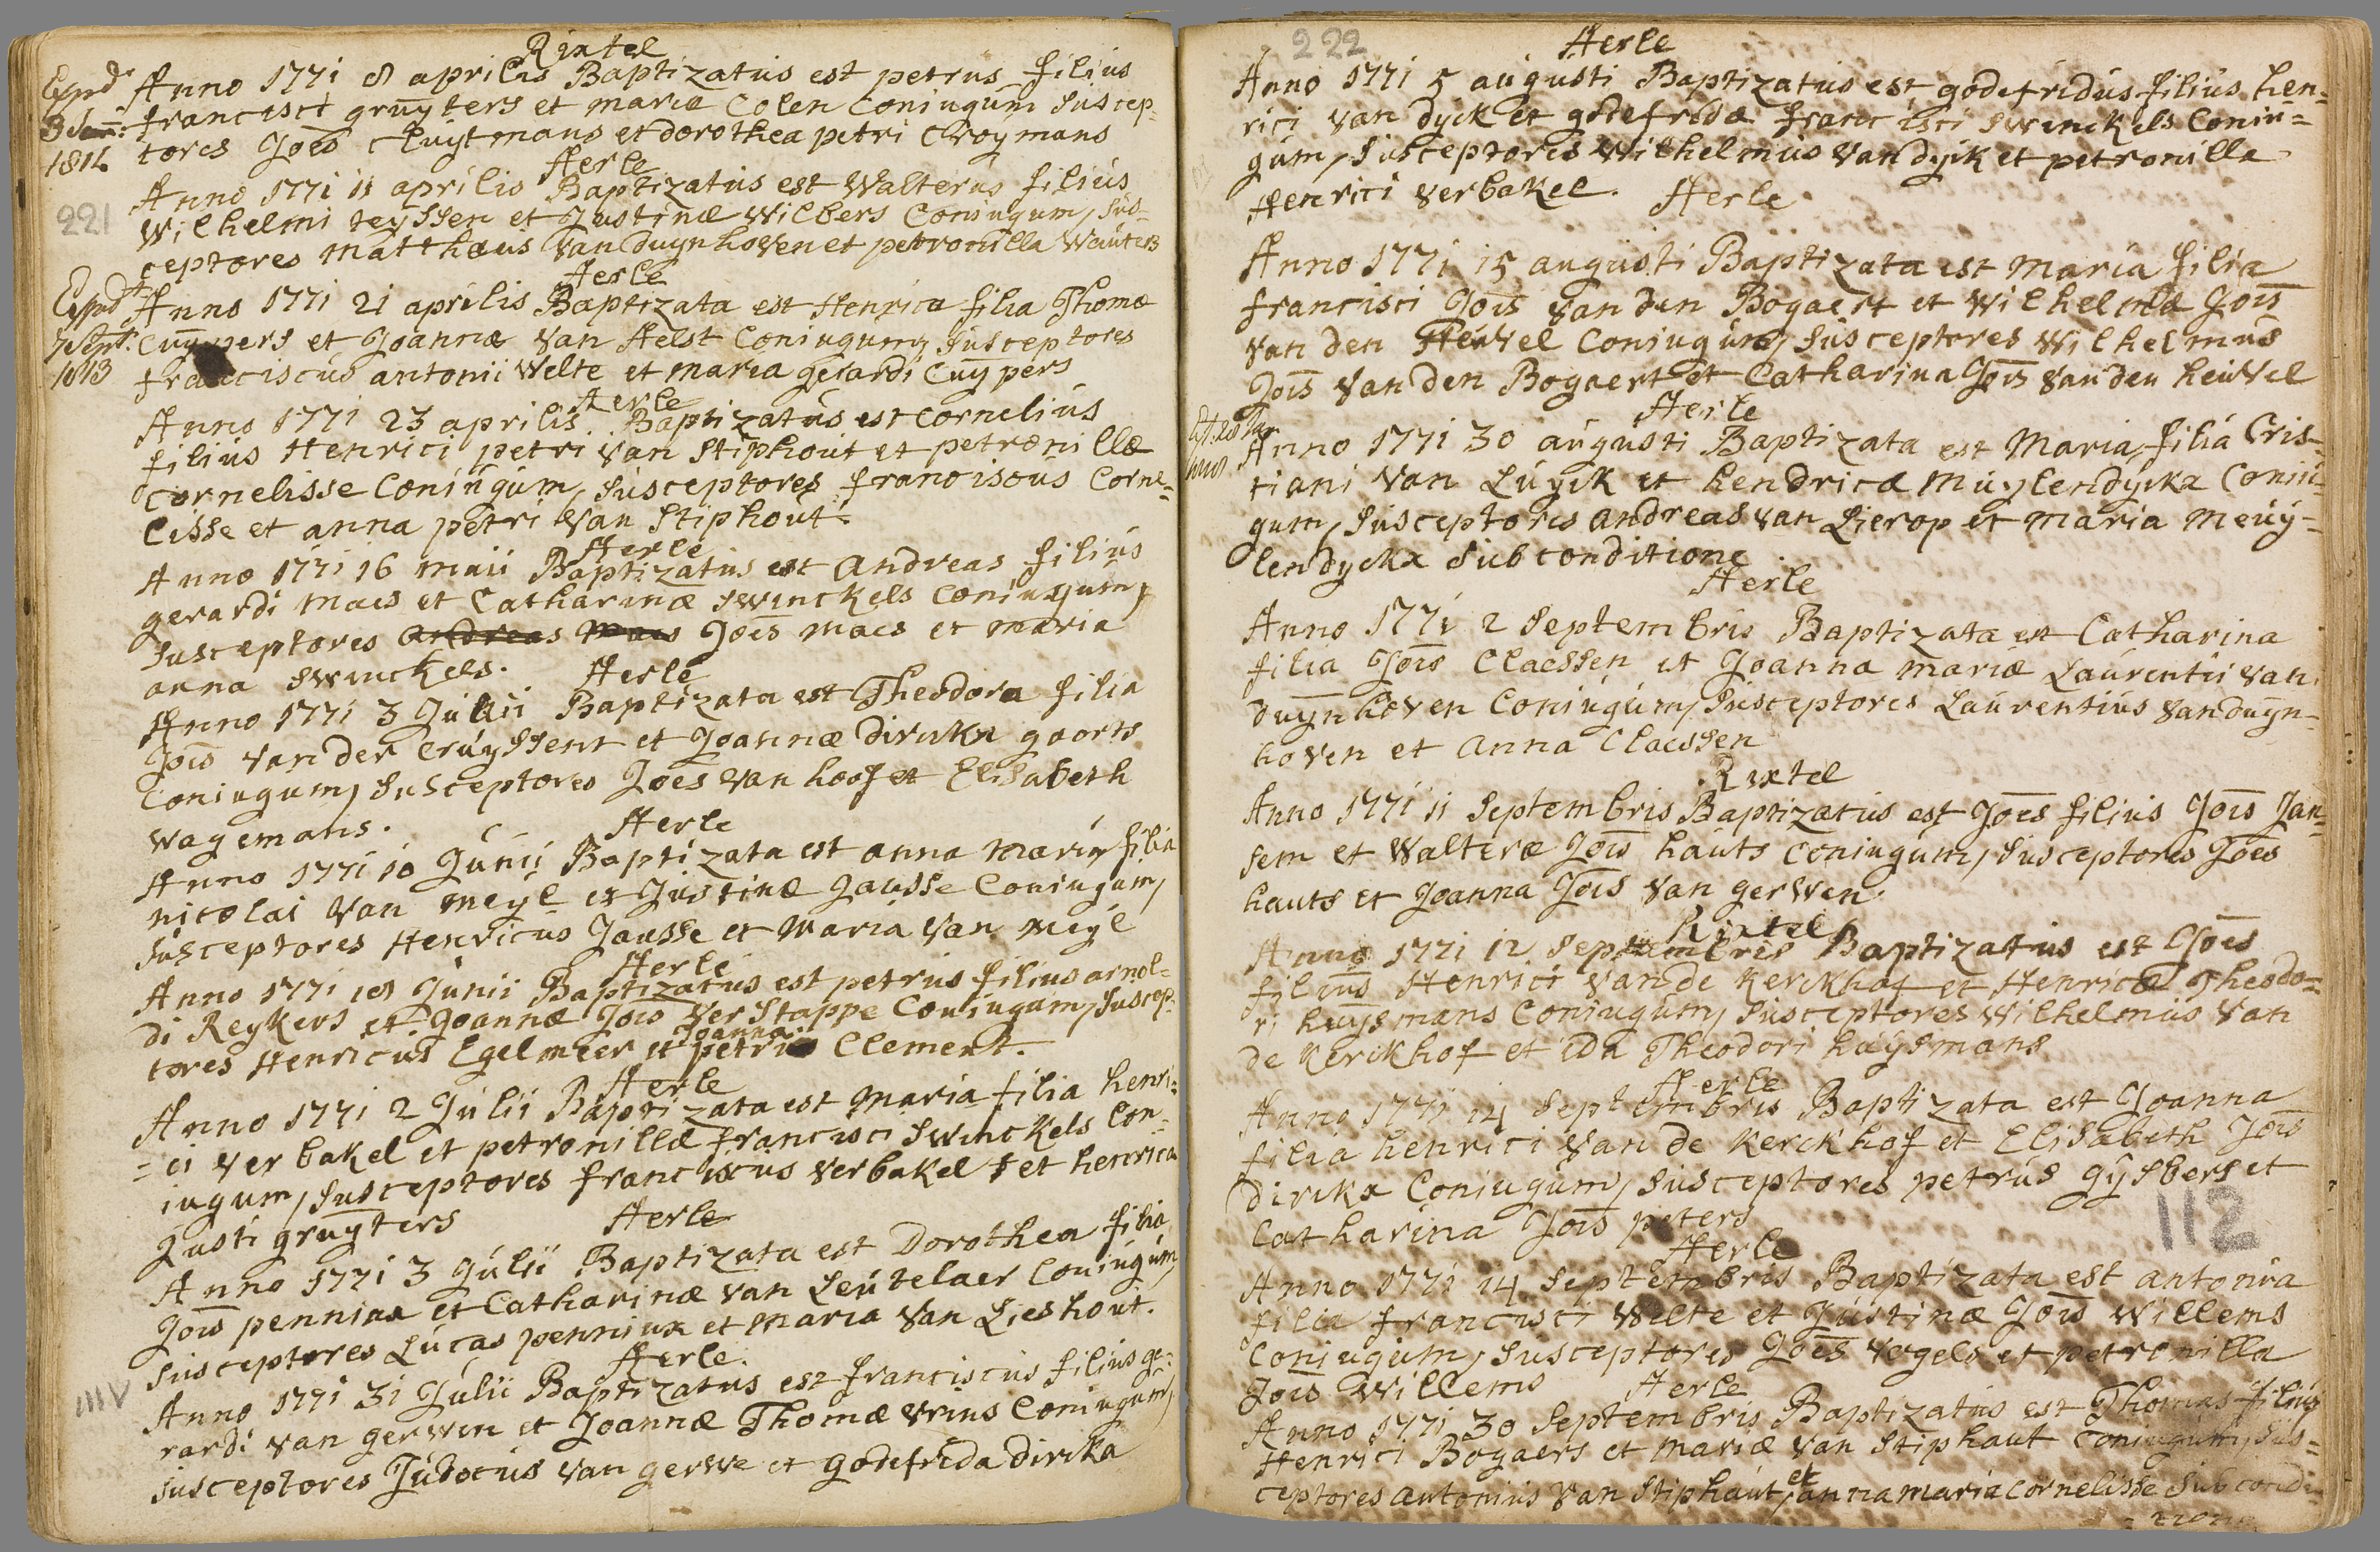 Rixtel
Anno 1771 8 aprilis Baptizatus est petrus filius
francisci gruÿters et mariæ Colen Coniugum Suscep-
tores Joēs Cluytmans et dorothea petri Croymans
Expd
3
1812
Aerle
Anno 1771 11 aprilis Baptizatus est Walterus filius
Wilhelmi teÿssen et Justinæ Wilbers Coniugum, Sus=
ceptores Matthæus Van duynhoven et petronilla Wauters
221
Aerle
Anno 1771 21 aprilis Baptizata est Henrica filia Thomæ
Cuÿpers et Joannæ Van Aelst Coniugum, Susceptores
franciscus antonii Welte et maria gerardi Cuÿpers
Expd
7 Sept:
1813
Aerle
Anno 1771 23 aprilis Baptizatus est Cornelius
filius Henrici petri Van Stiphout et petronillæ
Cornelisse Coniugum, Susceptores franciscus Corne=
lisse et anna petri Van Stiphout.
Aerle
Anno 1771 16 maii Baptizatus est andreas filius
gerardi Maes et Catharinæ Swinckels Coniugum,
Susceptores andreas Maes Joēs Maes et maria
anna Swinckels.
Aerle
Anno 1771 3 Junii Baptizata est Theodora filia
Joīs Van der Cruÿssent et Joannæ dirckx goorts
Coniugum, Susceptores Joēs Van hoof et Elisabeth
Wagemans.
Aerle
Anno 1771 10 Junii Baptizata est anna Maria filia
nicolai Van Meÿl et Justinæ Jansse Coniugum,
Susceptores Henricus Jansse et Maria Van Meÿl
Aerle
Anno 1771 18 Junii Baptizatus est petrus filius arnol=
di Reykers et Joannæ Joīs Ver Stappe Coniugum, Suscep-
tores Henricus Egelmeer et petri Joanna Clement.
Aerle
Anno 1771 2 Julii Baptizata est Maria filia henri=
=ci Verbakel et petronillæ francisci Swinckels Con=
iugum, Susceptores franciscus Verbakel et henrica
Justi gruyters
Aerle
Anno 1771 3 Julii Baptizata est Dorothea filia
Joīs penninx et Catharinæ Van Leutelaer Coniugum,
Susceptores Lucas penninx et Maria Van Lieshout.
Aerle
Anno 1771 31 Julii Baptizatus est franciscus filius ge=
rardi Van gerwen et Joannæ Thomæ Vrins Coniugum,
Susceptores Judocus Van gerwe et godefrida dirckx
111V
222
Aerle
Anno 1771 5 augusti Baptizatus est godefridus filius hen=
rici Van dyck et godefridæ francisci Swinckels Coniu=
gum, Susceptores Wilhelmus Van dyck et petronilla
Henrici Verbakel.
Aerle
Anno 1771 15 augusti Baptizata est Maria filia
francisci Joīs Van den Bogaert et Wilhelmæ Joīs
Van den Heuvel Coniugum, Susceptores Wilhelmus
Joīs Van den Bogaert et Catharina Joīs Van den heuvel
Aerle
Anno 1771 30 augusti Baptizata est Maria, filia Cris=
tiani Van Luÿck et hendricæ Muylendyckx Coniu=
gum, Susceptores andreas Van Lierop et Maria Meuÿ=
lendyckx Sub conditione.
Aerle
Anno 1771 2 Septembris Baptizata est Catharina
filia Joīs Claessen et Joanna mariæ Laurentii Van
duynhoven Coniugum, Susceptores Laurentius Van duyn=
hoven et anna Claessen
Rixtel
Anno 1771 11 Septembris Baptizatus est Joēs filius Joīs Jan=
sem et Walteræ Joīs hauts Coniugum, Susceptores Joēs
hauts et Joanna Joīs Van gerwen.
Rixtel
Anno 1771 12 Septembris Baptizatus est Joēs
filius Henrici Van de Kerckhof et Henricæ Theodo=
ri huysmans Coniugum, Susceptores Wilhelmus Van
de Kerckhof et ida Theodori huysmans
Aerle
Anno 1771 14 Septembris Baptizata est Joanna
filia henrici Van de Kerckhof et Elisabeth Joīs
dirckx Coniugum, Susceptores petrus gÿsbers et
Catharina Joīs peters
112
Aerle
Anno 1771 14 Septembris Baptizata est antonia
filia francisci Welte et Justinæ Joīs Willems
Coniugum, Susceptores Joēs Vogels et petronilla
Joīs Willems
Aerle
Anno 1771 30 Septembris Baptizatus est Thomas filius
Henrici Bogaers et mariæ Van Stiphaut Coniugum, Sus=
ceptores antonius Van Stiphaut, et anna maria Cornelisse Sub condi=